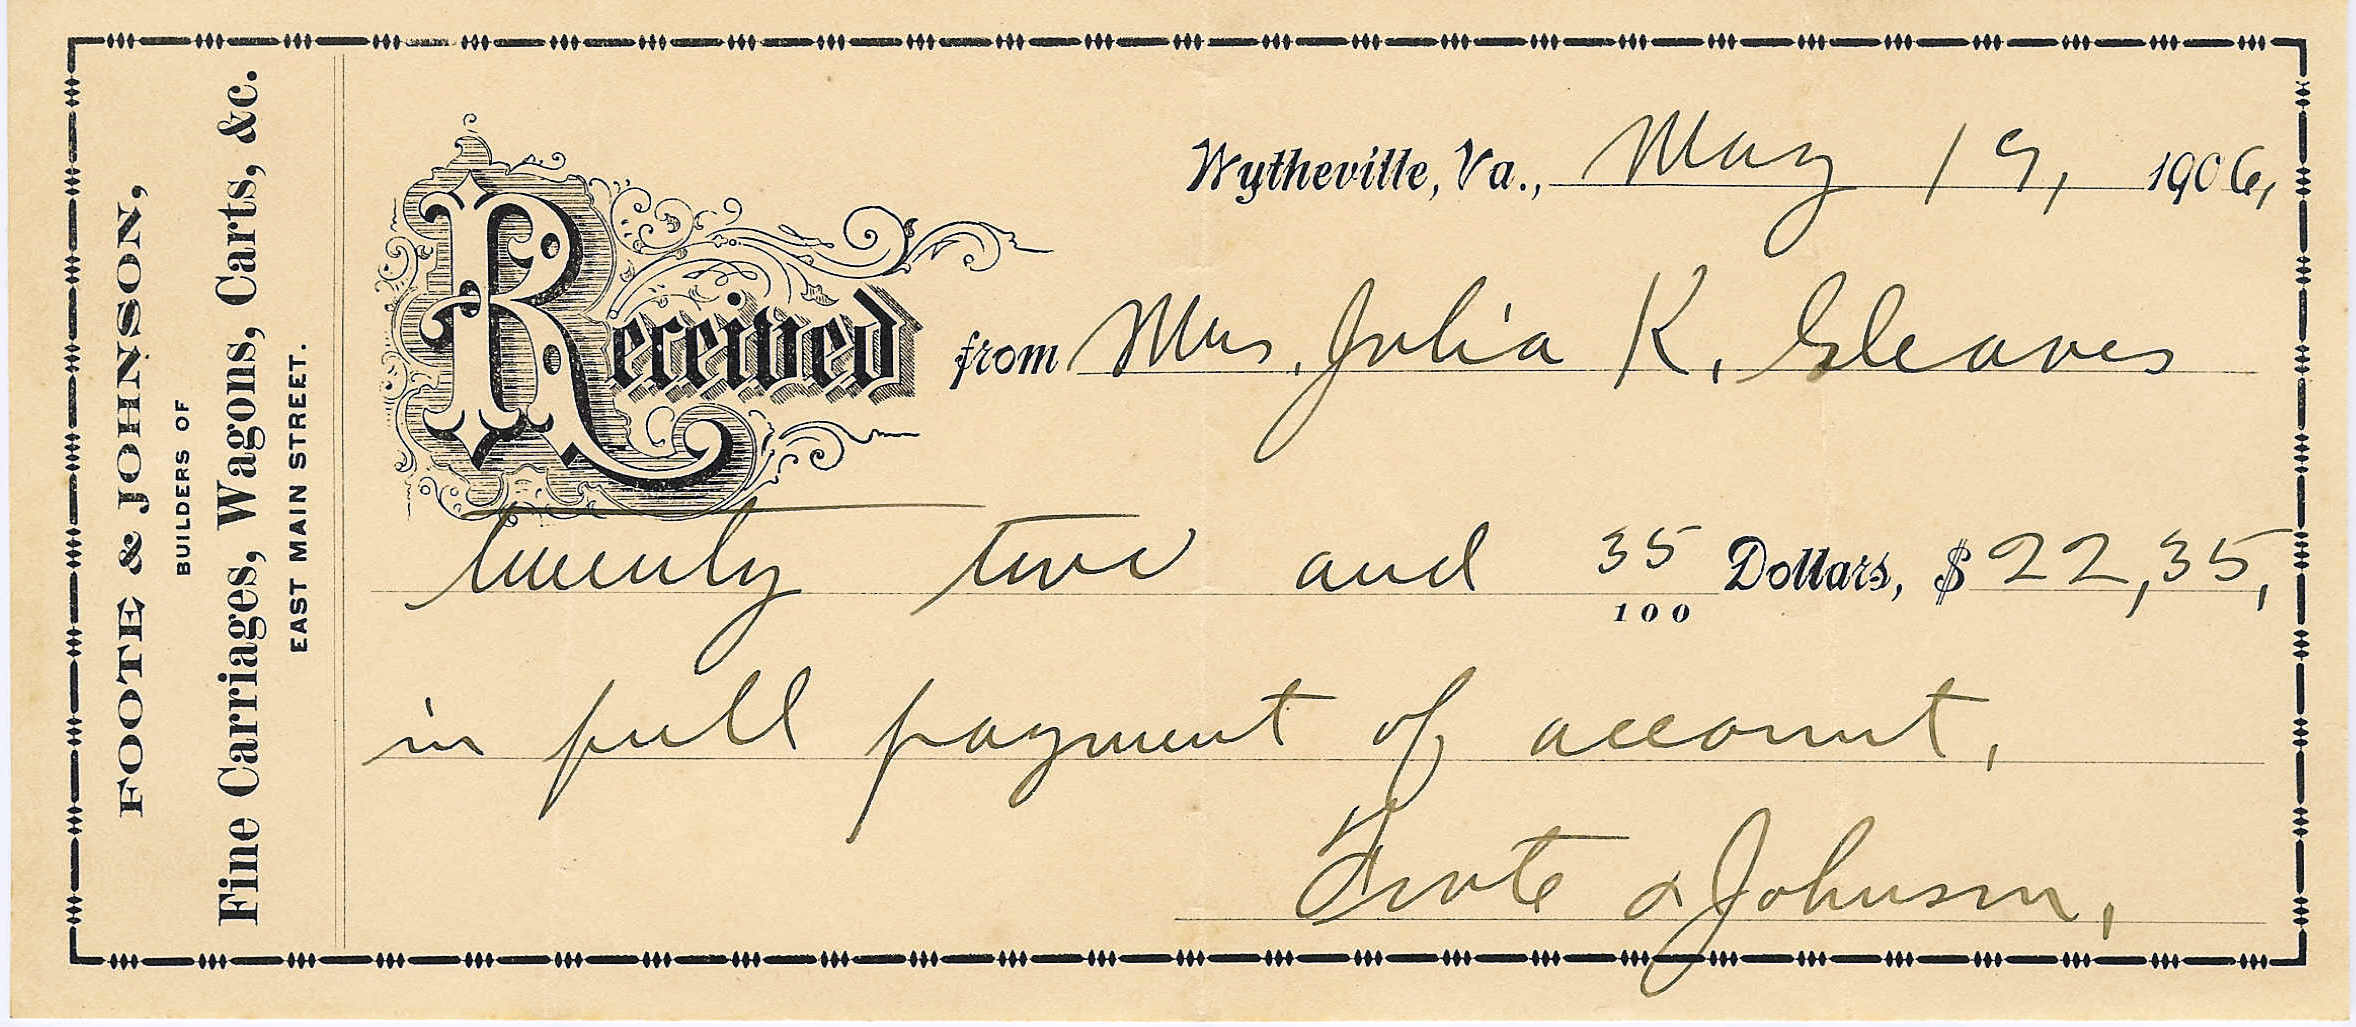 FOOTE & JOHNSON,
BUILDERS OF
Fine Carriages, Wagons, Carts, &c.
EAST MAIN STREET.
Wytheville, Va., May 19, 1906,
Received from Mrs. Julia K. Gleaves
twenty two and 35/100 Dollars, $22,35,
in full payment of account,
Foote & Johnson,